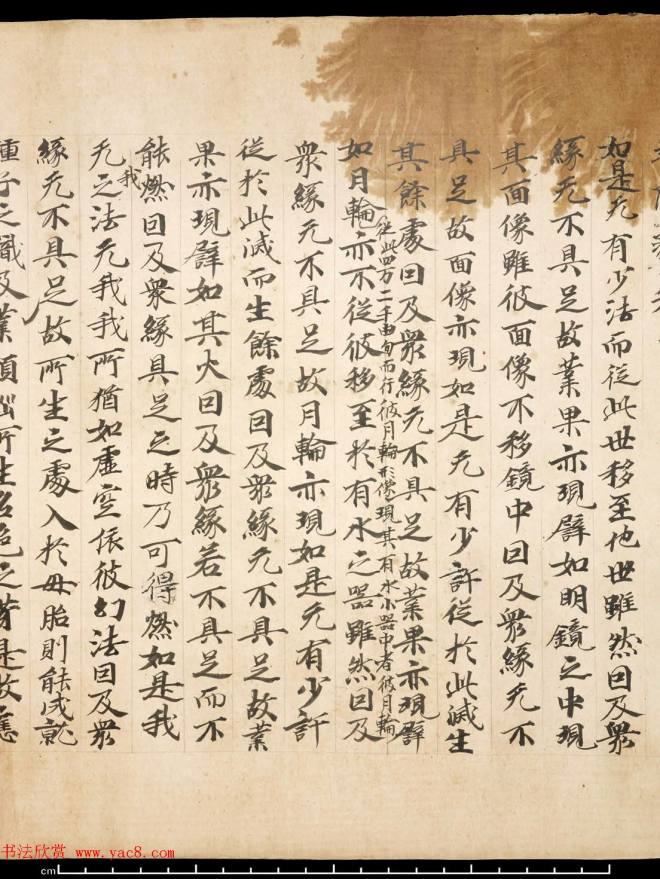 如是无有少法而從此世移至他世雖然因及衆
緣无不具足故業果亦現譬如明鏡之中現
其面像雖彼面像不移鏡中因及衆緣无不
具足故面像亦現如是无有少許從於此滅生
其餘處因及衆緣无不具足故業果亦現譬
如月輪從此四万二千由旬而行彼月輪形像現其有水小器中者彼月輪
亦不從彼移至於有水之器雖然因及
衆緣无不具足故月輪亦現如是无有少許
從於此滅而生餘處因及衆緣无不具足故業
果亦現譬如其火因及衆緣若不具足而不
能燃因及衆緣具足之時乃可得燃如是我
无我之法无我我所猶如虛空依彼幻法因及衆
緣无不具足故所生之處入於母胎則能成就
種子之識及業煩惱所生名色之芽是故應
书法欣赏 www.yac8.com
cm